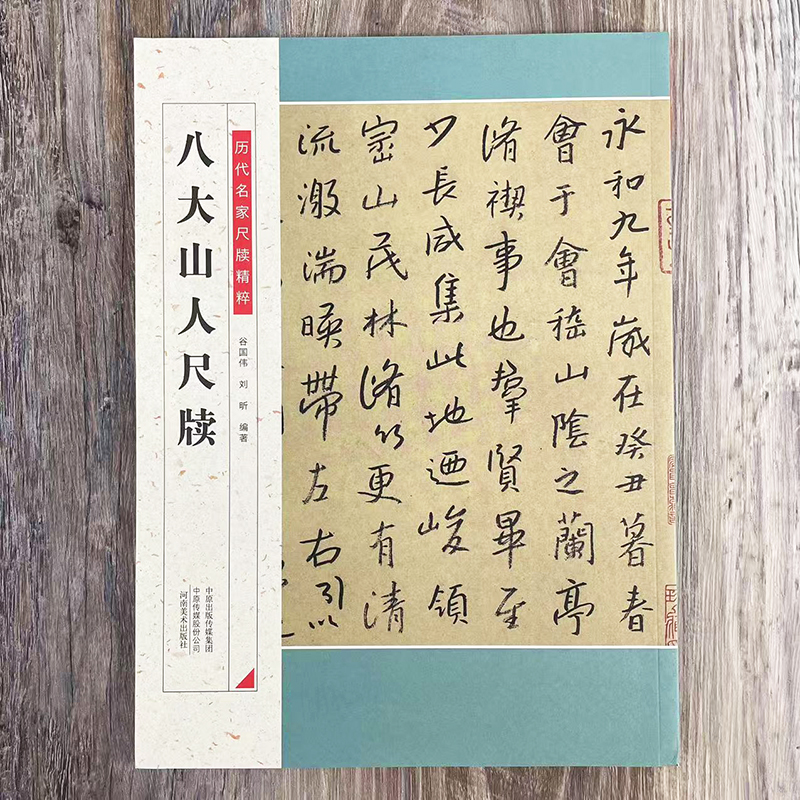 历代名家尺牍精粹
八大山人尺牍
谷国伟 刘昕 编著
中原出版传媒集团
中原传媒股份公司
河南美术出版社
永和九年歲在癸丑暮春
會于會嵇山陰之蘭亭
脩禊事也羣賢畢至
少長咸集此地迺峻領
崈山茂林脩竹更有清
流激湍暎帶左右引以